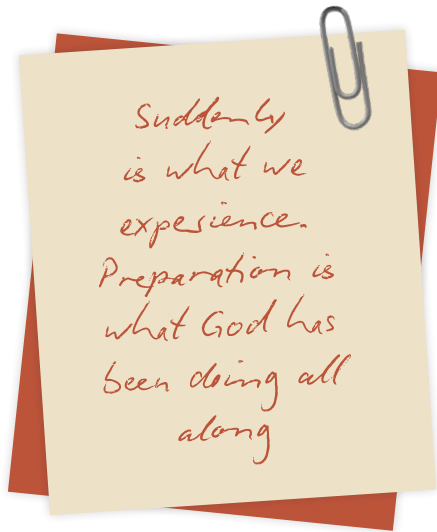 Suddenly
is what we
experience.
Preparation is
what God has
been doing all
along